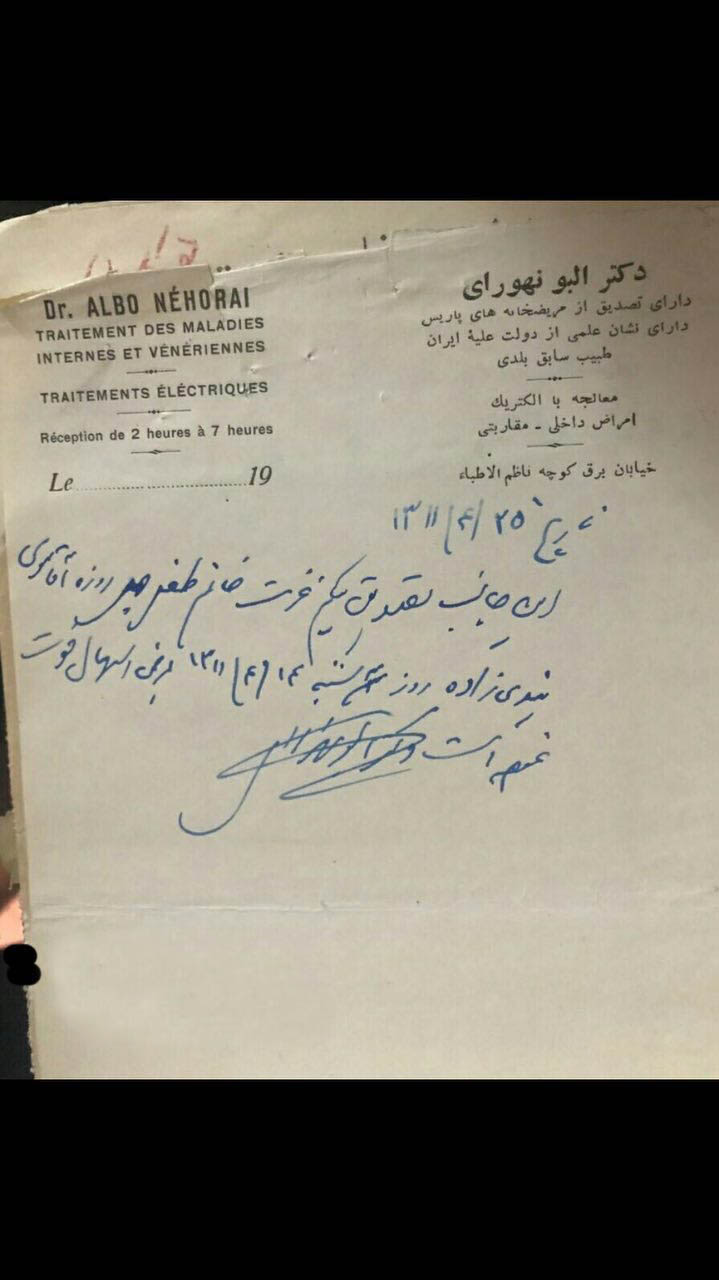 Dr. ALBO NÉHORAI
TRAITEMENT DES MALADIES
INTERNES ET VÉNÉRIENNES
TRAITEMENTS ÉLECTRIQUES
Réception de 2 heures à 7 heures
Le 19
دکتر البو نهورای
دارای تصدیق از مریضخانه های پاریس
دارای نشان علمی از دولت علیهٔ ایران
طبیب سابق بلدی
معالجه با الکتریك
امراض داخلی - مقاربتی
خیابان برق کوچه ناظم الاطباء
تاریخ ۲۵/۴/۱۳۱۱
این جانب تصدیق میکنم عزت خانم طفل روزه آقای
زاده روز شنبه ۱۴/۴/۱۳۱۱ بمرض اسهال فوت
نموده است